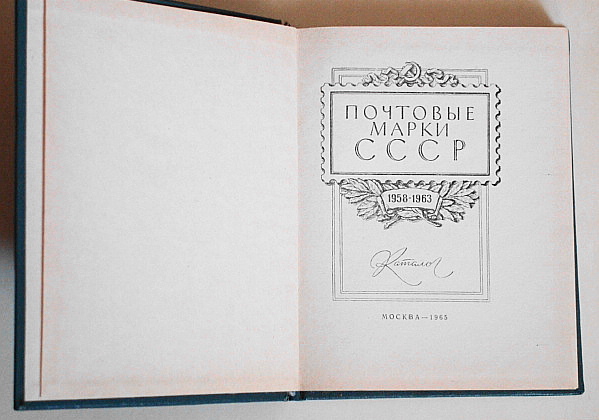 ПОЧТОВЫЕ
МАРКИ
СССР
1958-1963
Каталог
МОСКВА — 1965